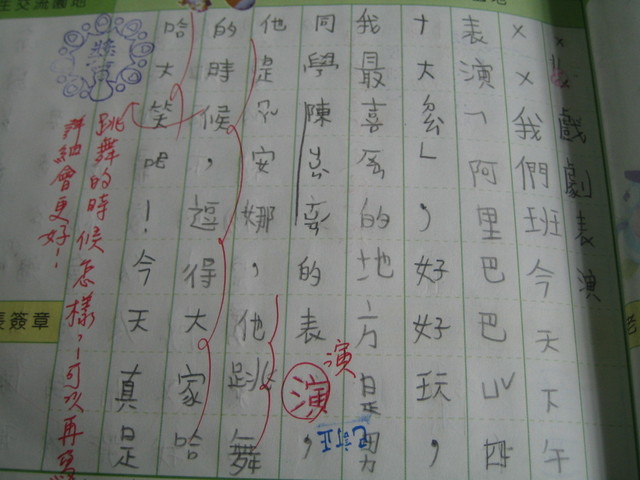 戲劇表演
我們班今天下午
表演「阿里巴巴ㄩˇ四
十大」，好好玩，
我最喜的地方是男
同學陳的表演，
演
已訂正
他是安娜，他跳舞
的時候，逗得大家哈
哈大笑吧！今天真是
跳舞的時候怎樣，可以再
詳細會更好！
長簽章